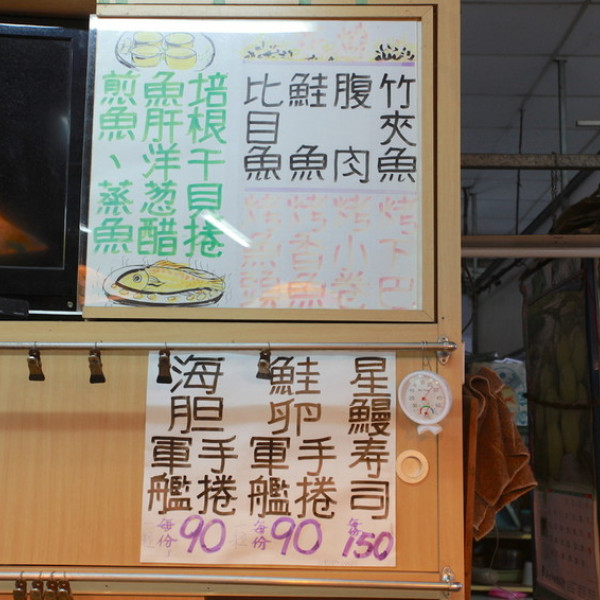 竹夾魚
腹肉
鮭魚
比目魚
烤下巴
烤小卷
烤香魚
烤魚頭
培根干貝捲
魚肝洋葱醋
煎魚、蒸魚
星鰻寿司
每份150
鮭卵
手捲
軍艦
每份90
海胆
手捲
軍艦
每份90